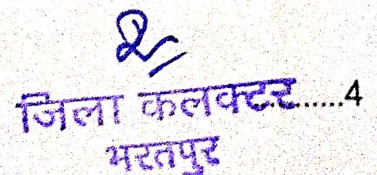 जिला कलक्टर.....4
भरतपुर